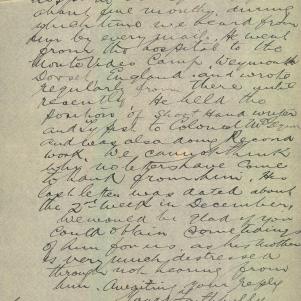 about five months, during
which time we heard from
him by every mail. He went
from the hospital to the
Monte Video Camp, Weymouth
Dorset, England. and wrote
regularly from there until
recently. He held the
position of Short Hand writer
and typist to Colonel
and was also doing Record
work. We cannot think
why no letters have come
to hand from him. His
last letter was dated about
the 2nd week in December.
We would be glad if you
could obtain some tidings
of him for us, as his mother
is very much distressed
through not hearing from
him. Awaiting your reply